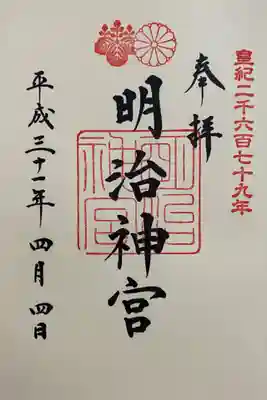 皇紀二千六百七十九年
奉拝
明治神宮
明治神宮
平成三十一年 四月 四日